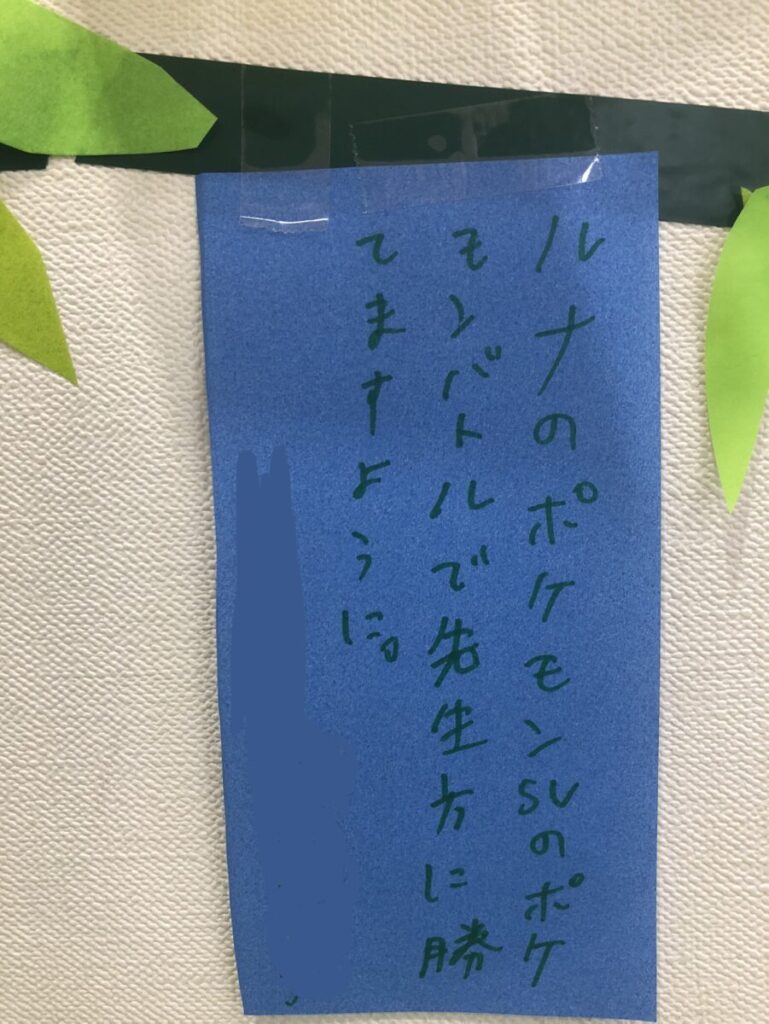 ルナのポケモンSVのポケ
モンバトルで先生方に勝
てますように。